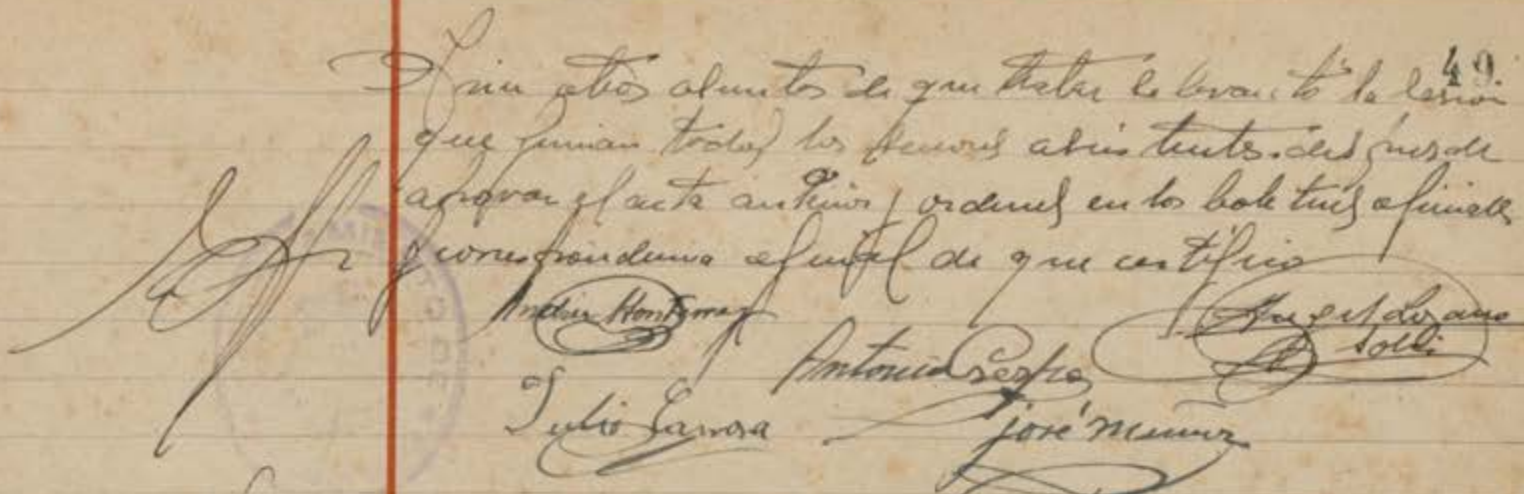 49.
Y sin otros asuntos de que tratar se levantó la sesion
que firman todos los señores asistentes despues de
aprovar el acta anterior y ordenes en los boletines oficiales
y correspondencia oficial de que certifico
Andres Montemar
Angel Lozano
Antonio Crespo
Julio Carrosa
José Muñoz